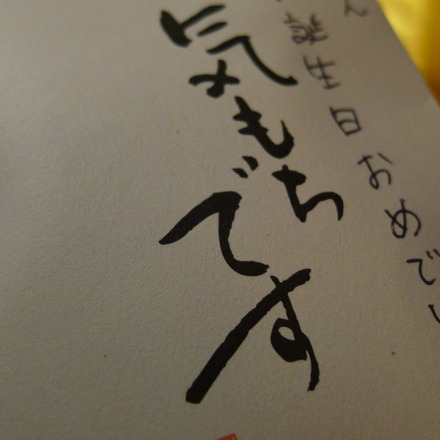 ん
誕生日おめでと
気もちです